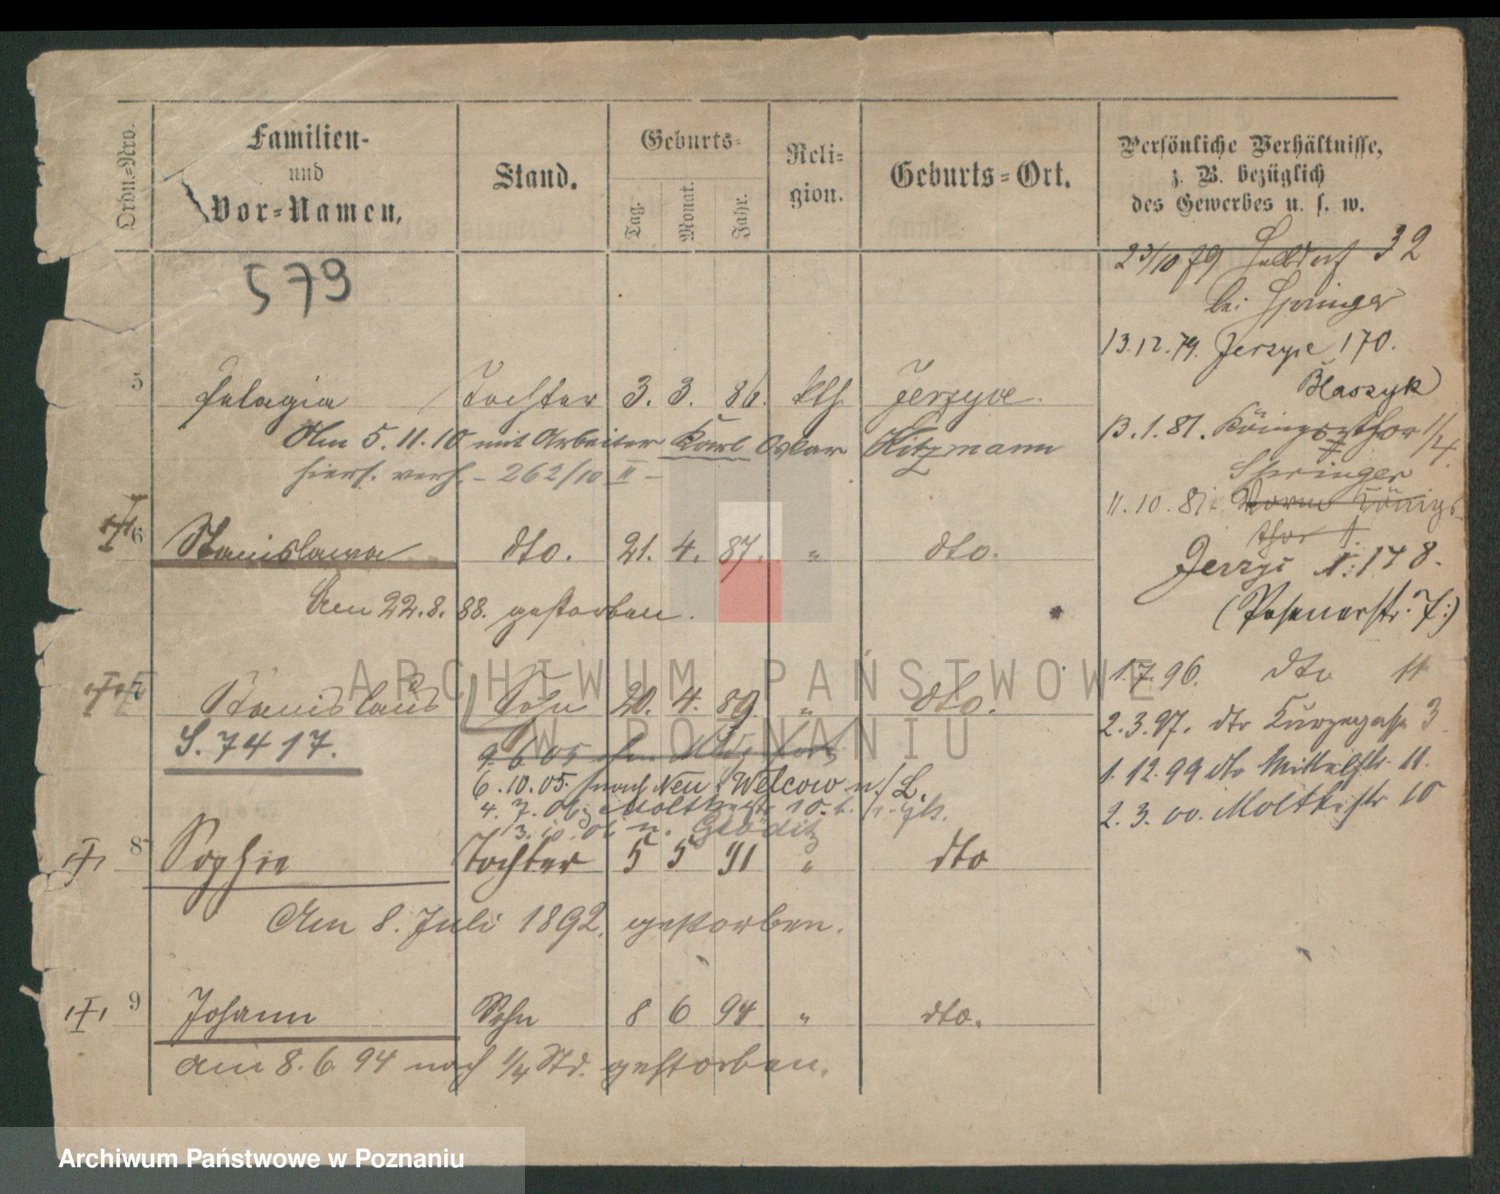 Ordn.-Nro.
Familien-
und
Vor-Namen.
Stand.
Geburts-
Tag.
Monat.
Jahr.
Reli-
gion.
Geburts-Ort.
Persönliche Verhältnisse,
z. B. bezüglich
des Gewerbes u. s. w.
573
23/10 79 32
bei Springer
13.12.79. Jerzyce 170.
Blaszyk
13.1.81. Königsthor 1/4.
Springer
11.10.81. Vorm Königs
thor 1.
Jerzyc N: 178.
(Posenerstr. 7.)
1.7.96. dto 11
2.3.97. dto Kurzegasse 3
1.12.99 dto Mittelstr. 11.
2.3.00. Moltkestr 10
5 Pelagia Tochter 3. 3. 86. kth. Jerzyce.
Am 5.11.10 mit Arbeiter Karl Oskar Kitzmann
hiers. verh. - 262/10 II -
6 Stanislawa dto. 21. 4. 87. " dto.
Am 22.8.88. gestorben.
7 Stanislaus Sohn 20. 4. 89 " dto.
S. 7417.
9.6.05
6.10.05. nach Neu Welcow n/L.
4.7.06 Moltkestr 10.
13.10.06 n.
8 Sophie Tochter 5 5 91 " dto
Am 8. Juli 1892. gestorben.
9 Johann Sohn 8 6 94 " dto.
am 8.6.94 nach 1/4 Std. gestorben.
ARCHIWUM PAŃSTWOWE
W POZNANIU
Archiwum Państwowe w Poznaniu